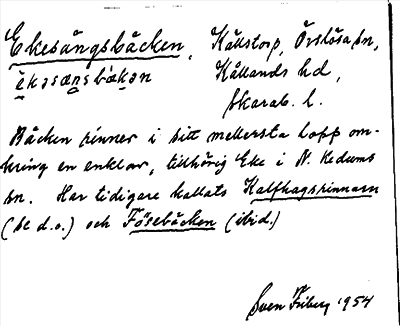 Ekesångsbäcken, Källstorp, Örslösa sn,
èkasæŋsbækən Kållands hd,
Skarab. l.
Bäcken rinner i sitt mellersta lopp om-
kring en enklav, tillhörig Eke i N. Kedums
sn. Har tidigare kallats Kalfhagsrinnarn
(se d.o.) och Fösebäcken (ibid.)
Sven Friberg 1954